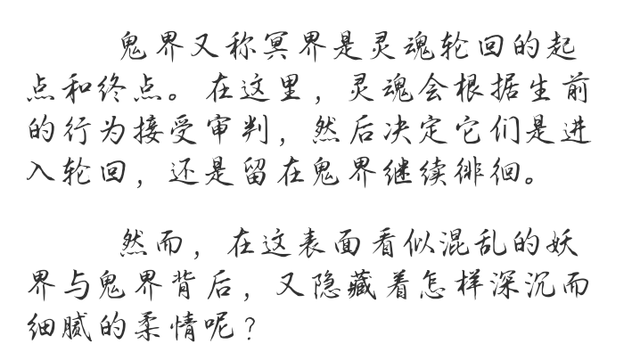 鬼界又称冥界是灵魂轮回的起
点和终点。在这里，灵魂会根据生前
的行为接受审判，然后决定它们是进
入轮回，还是留在鬼界继续徘徊。
然而，在这表面看似混乱的妖
界与鬼界背后，又隐藏着怎样深沉而
细腻的柔情呢？